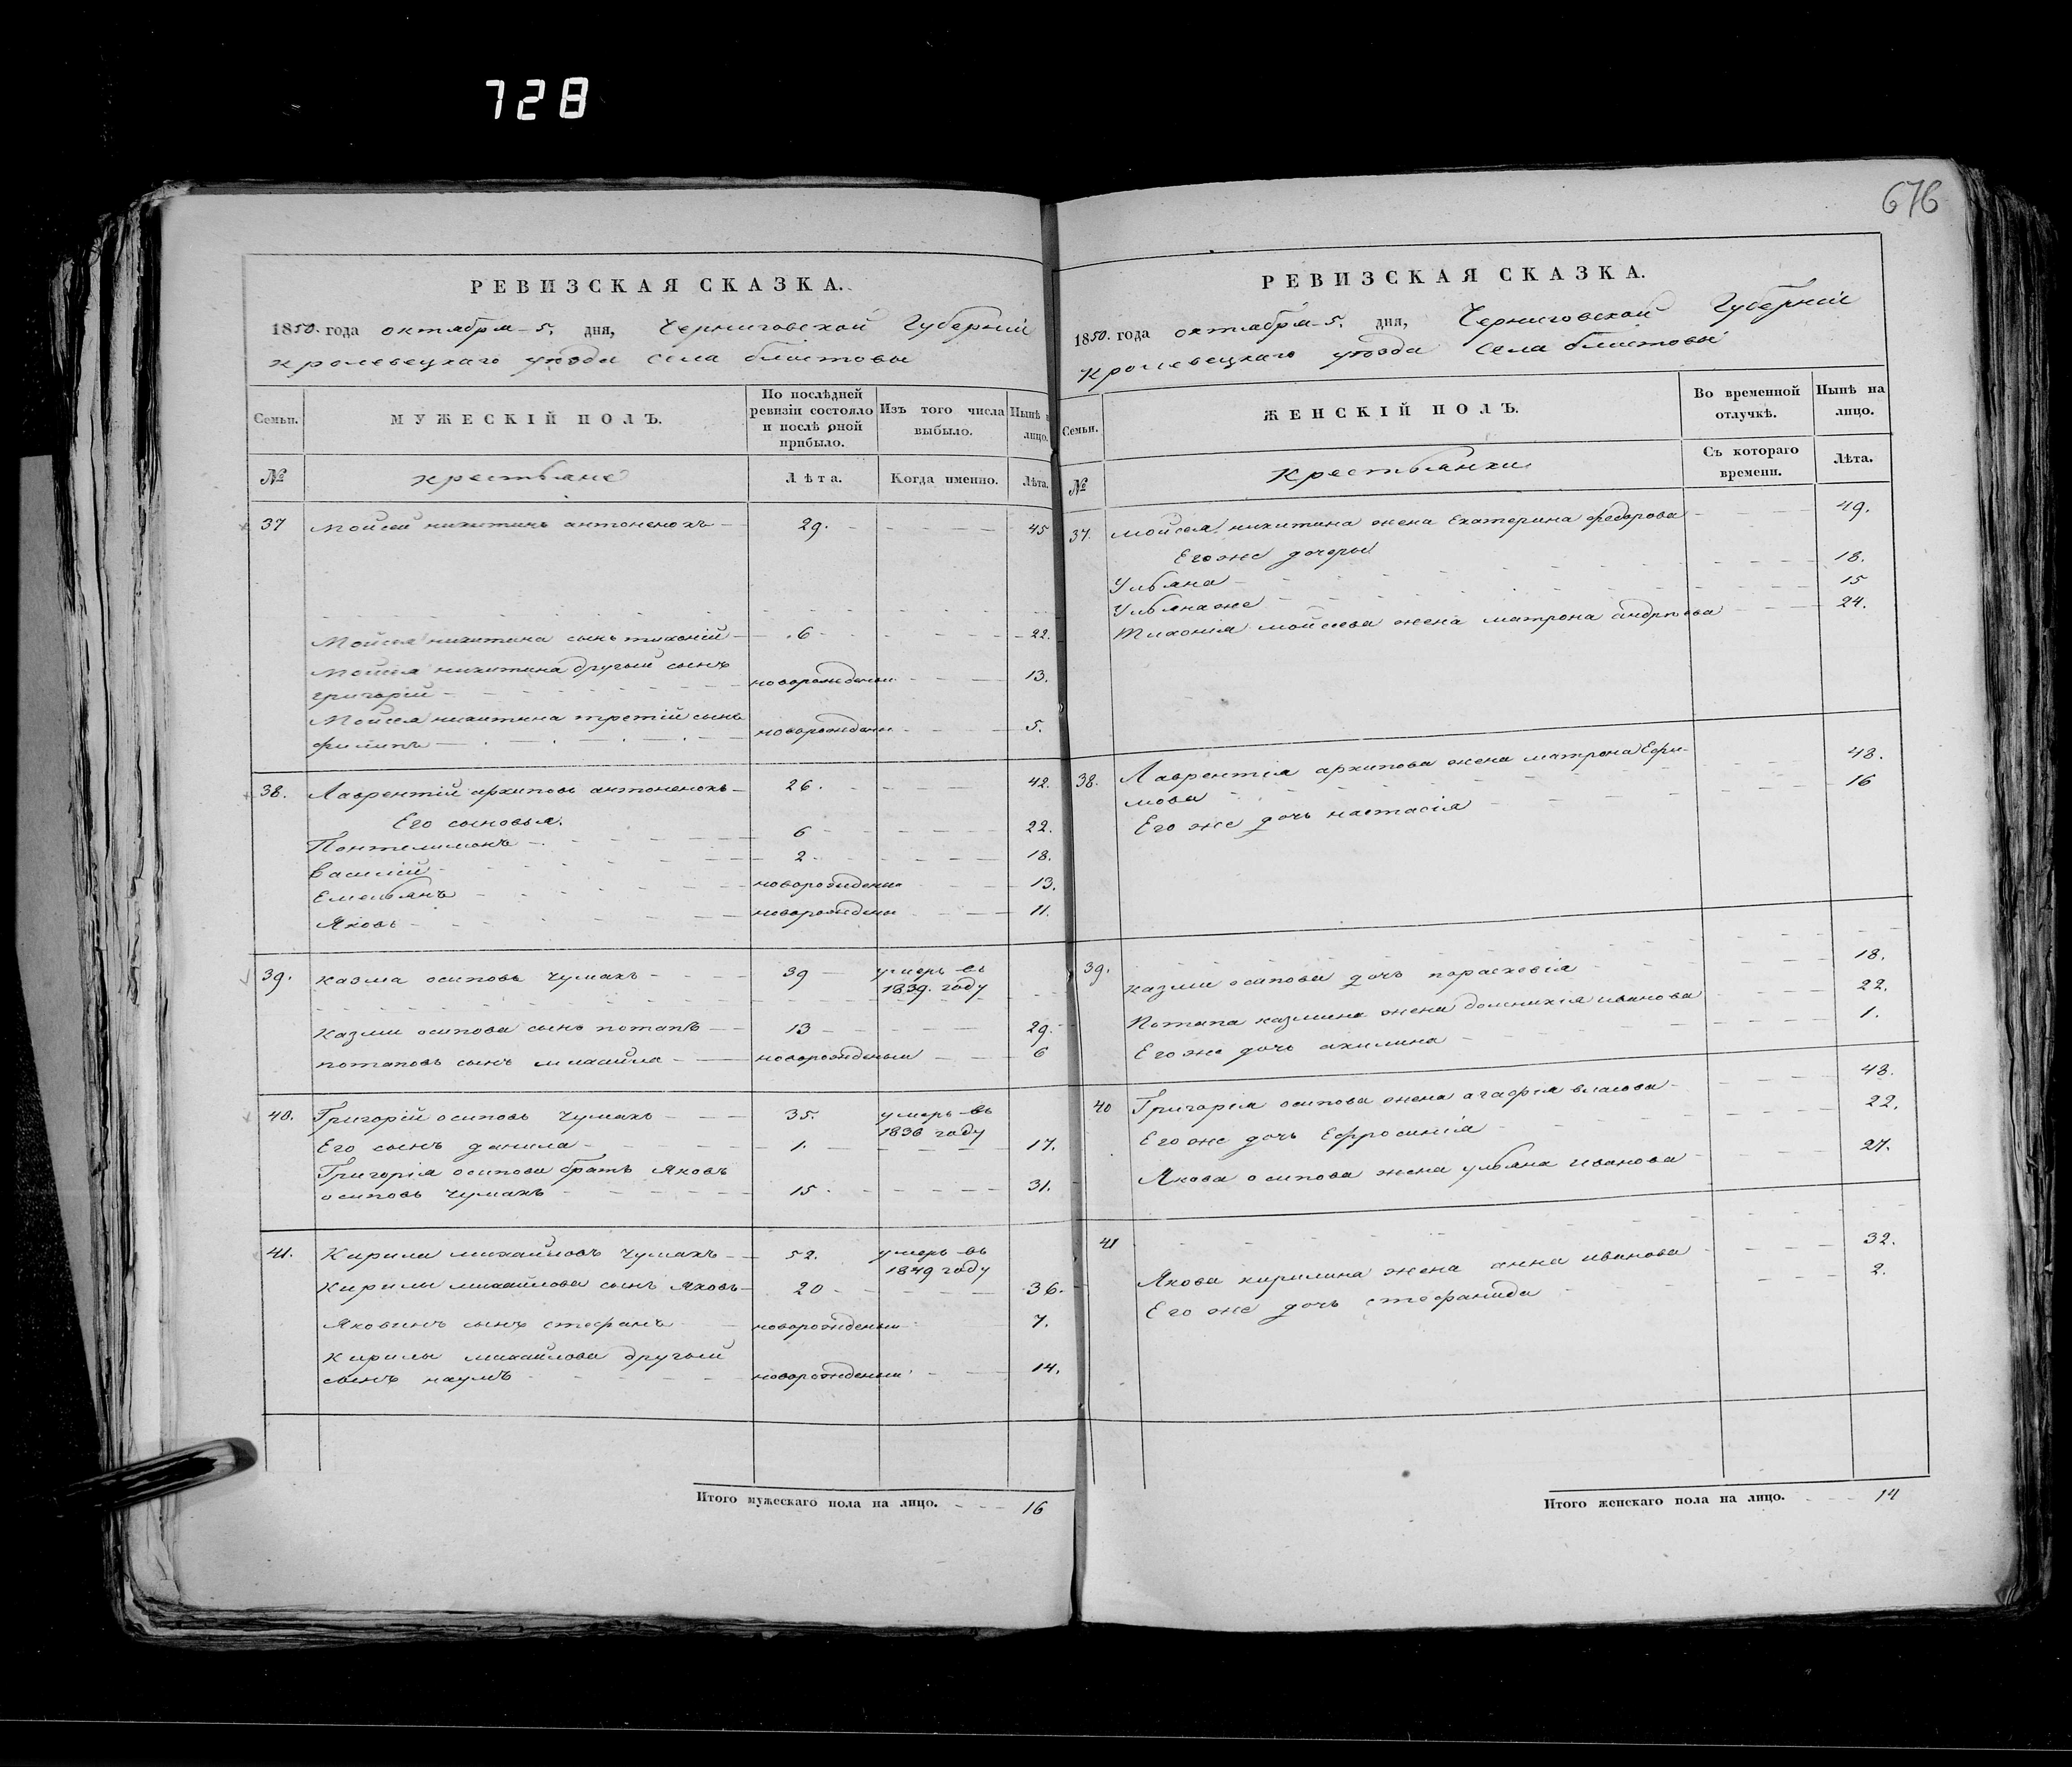 728
676
РЕВИЗСКАЯ СКАЗКА.
1850. года октября 5. дня, Черниговской Губерніи
кролевецкаго уѣзда села блистовы
Семьи.
МУЖЕСКІЙ ПОЛЪ.
По послѣдней ревизіи состояло и послѣ оной прибыло.
Изъ того числа выбыло.
Нынѣ на лицо.
№
крестьяне
Лѣта.
Когда именно.
Лѣта.
37 Мойсей никитинъ антоненокъ 29. 45
Мойсея никитина сынъ тихоній 6 22.
Мойсея никитина другий сынъ
григорій новорожденый 13.
Мойсея никитина третій сынъ
филипъ новорожденый 5.
38. Лаврентій архиповъ антоненокъ 26. 42.
Его сыновья.
Понтелимонъ 6 22.
василій 2 18.
Емельянъ новорожденый 13.
Яковъ новорожденый 11.
39. казма осиповъ чумакъ 39 умеръ въ
1839. году
казми осипова сынъ потапъ 13 29.
потаповъ сынъ михайла новорожденый 6
40. Григорій осиповъ чумакъ 35. умеръ въ
1836 году
Его сынъ данила 1. 17.
Григорія осипова братъ Яковъ
осиповъ чумакъ 15 31.
41. Кирила михайловъ чумакъ 52. умеръ въ
1849 году
Кирилы михайлова сынъ Яковъ 20 36.
Яковинъ сынъ стефанъ новорожденый 7.
Кирилы михайлова другий
сынъ наумъ новорожденый 14.
Итого мужескаго пола на лицо. 16
РЕВИЗСКАЯ СКАЗКА.
1850. года октября 5. дня, Черниговской Губерніи
кролевецкаго уѣзда села блистовы
Семьи.
ЖЕНСКІЙ ПОЛЪ.
Во временной отлучкѣ.
Нынѣ на лицо.
№
крестьянки
Съ котораго времени.
Лѣта.
37. мойсея никитина жена Екатерина федорова 49.
Его же дочеры
Ульяна 18.
Ульяна же 15
Тихонія мойсеева жена матрона андреева 24.
38. Лаврентія архипова жена матрона Ефи-
мова 43.
Его же дочь настасія 16
39.
казми осипова дочь параскевія 18.
Потапа казмина жена домникія иванова 22.
Его же дочь акилина 1.
40 Григорія осипова жена агафія власова 48.
Его же дочь Ефросинія 22.
Якова осипова жена ульяна иванова 27.
41
Якова кирилина жена анна иванова 32.
Его же дочь стефанида 2.
Итого женскаго пола на лицо. 14